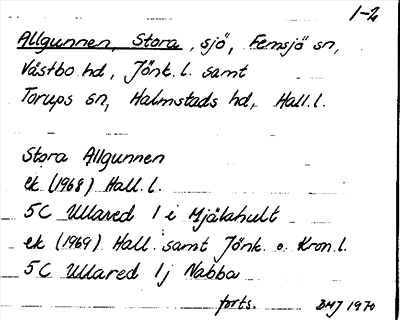 1-2
Allgunnen Stora, sjö, Femsjö sn,
Västbo hd, Jönk. l. samt
Torups sn, Halmstads hd, Hall. l.
Stora Allgunnen
ek (1968) Hall. l.
5C Ullared 1 i Mjälahult
ek (1969) Hall. samt Jönk. o. Kron. l.
5C Ullared 1j Nabba
forts.
BMJ 1970